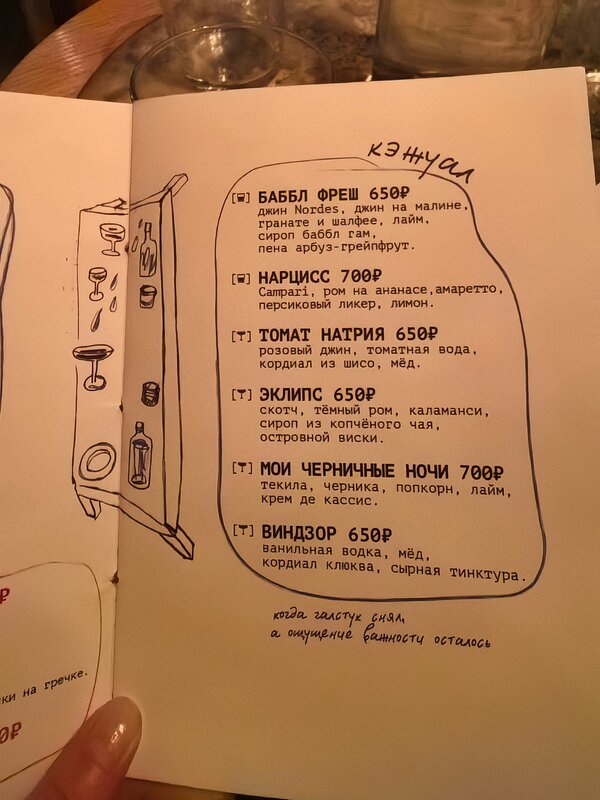 кэжуал
БАББЛ ФРЕШ 650₽
джин Nordes, джин на малине,
гранате и шалфее, лайм,
сироп баббл гам,
пена арбуз-грейпфрут.
НАРЦИСС 700₽
Campari, ром на ананасе,амаретто,
персиковый ликер, лимон.
ТОМАТ НАТРИЯ 650₽
розовый джин, томатная вода,
кордиал из шисо, мёд.
ЭКЛИПС 650₽
скотч, тёмный ром, каламанси,
сироп из копчёного чая,
островной виски.
МОИ ЧЕРНИЧНЫЕ НОЧИ 700₽
текила, черника, попкорн, лайм,
крем де кассис.
ВИНДЗОР 650₽
ванильная водка, мёд,
кордиал клюква, сырная тинктура.
когда галстук снял,
а ощущение важности осталось
₽
на гречке.
0₽